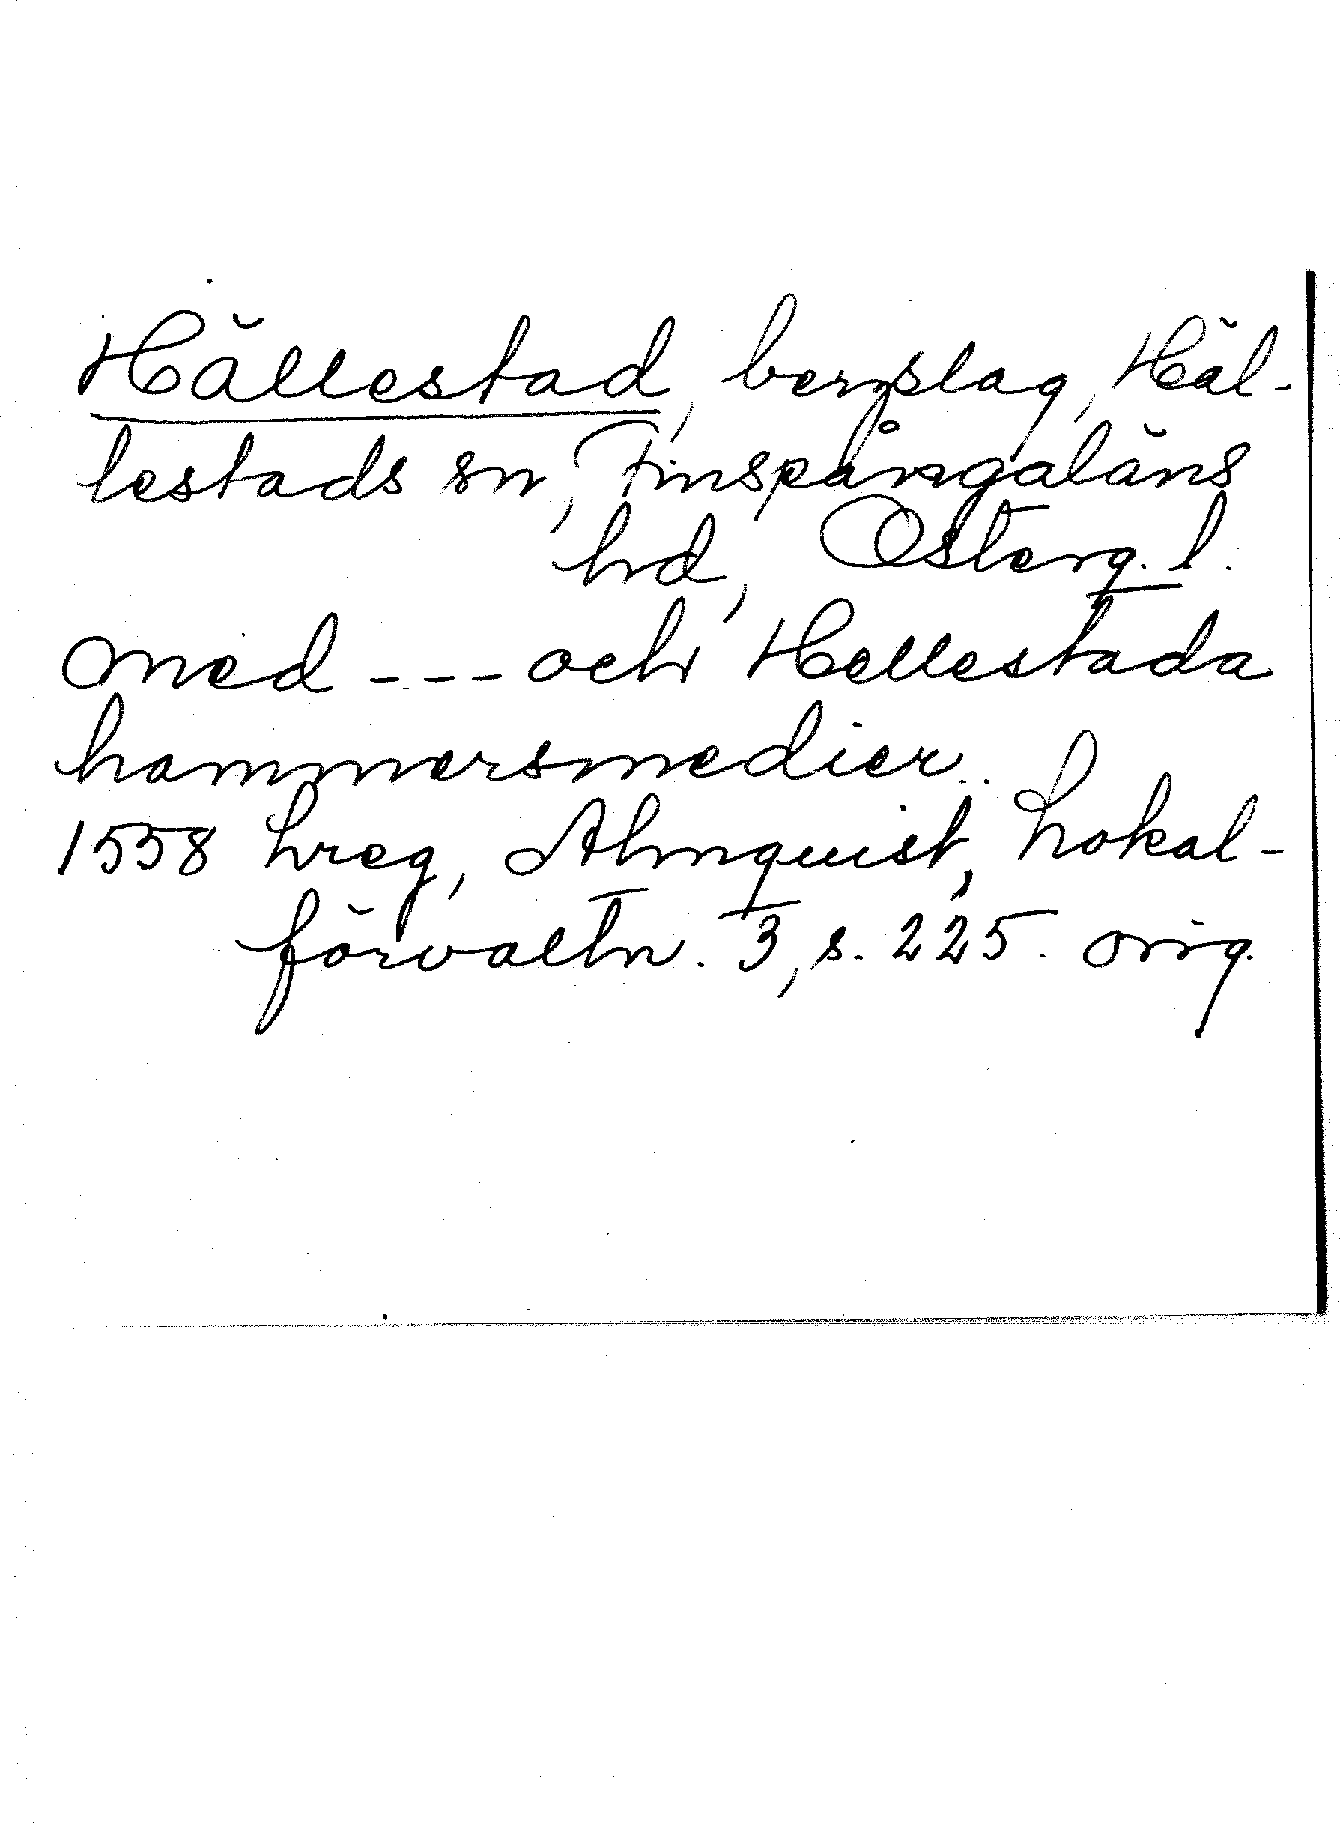 Hällestad, bergslag, Häl-
lestads sn, Finspångaläns
hd, Österg. l.
med --- och Hellestada
hammersmedier.
1558 hreg, Almquist, Lokal-
förvaltn. 3, s. 225. orig.